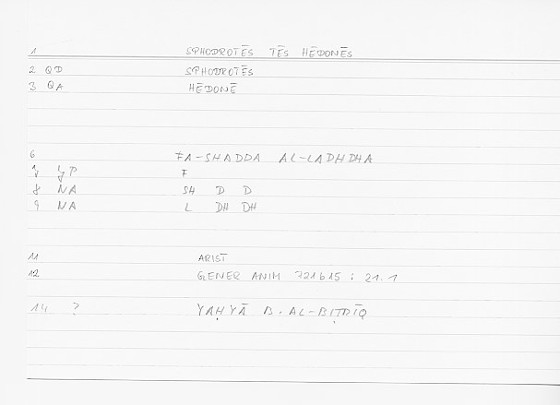 1 SPHODROTĒS TĒS HĒDONĒS
2 QD SPHODROTĒS
3 QA HĒDONĒ
6 FA-SHADDA AL-LADHDHA
7 YP F
8 NA SH D D
9 NA L DH DH
11 ARIST
12 GENER ANIM 721b15 : 21.1
14 ? YAḤYĀ B. AL-BIṬRĪQ